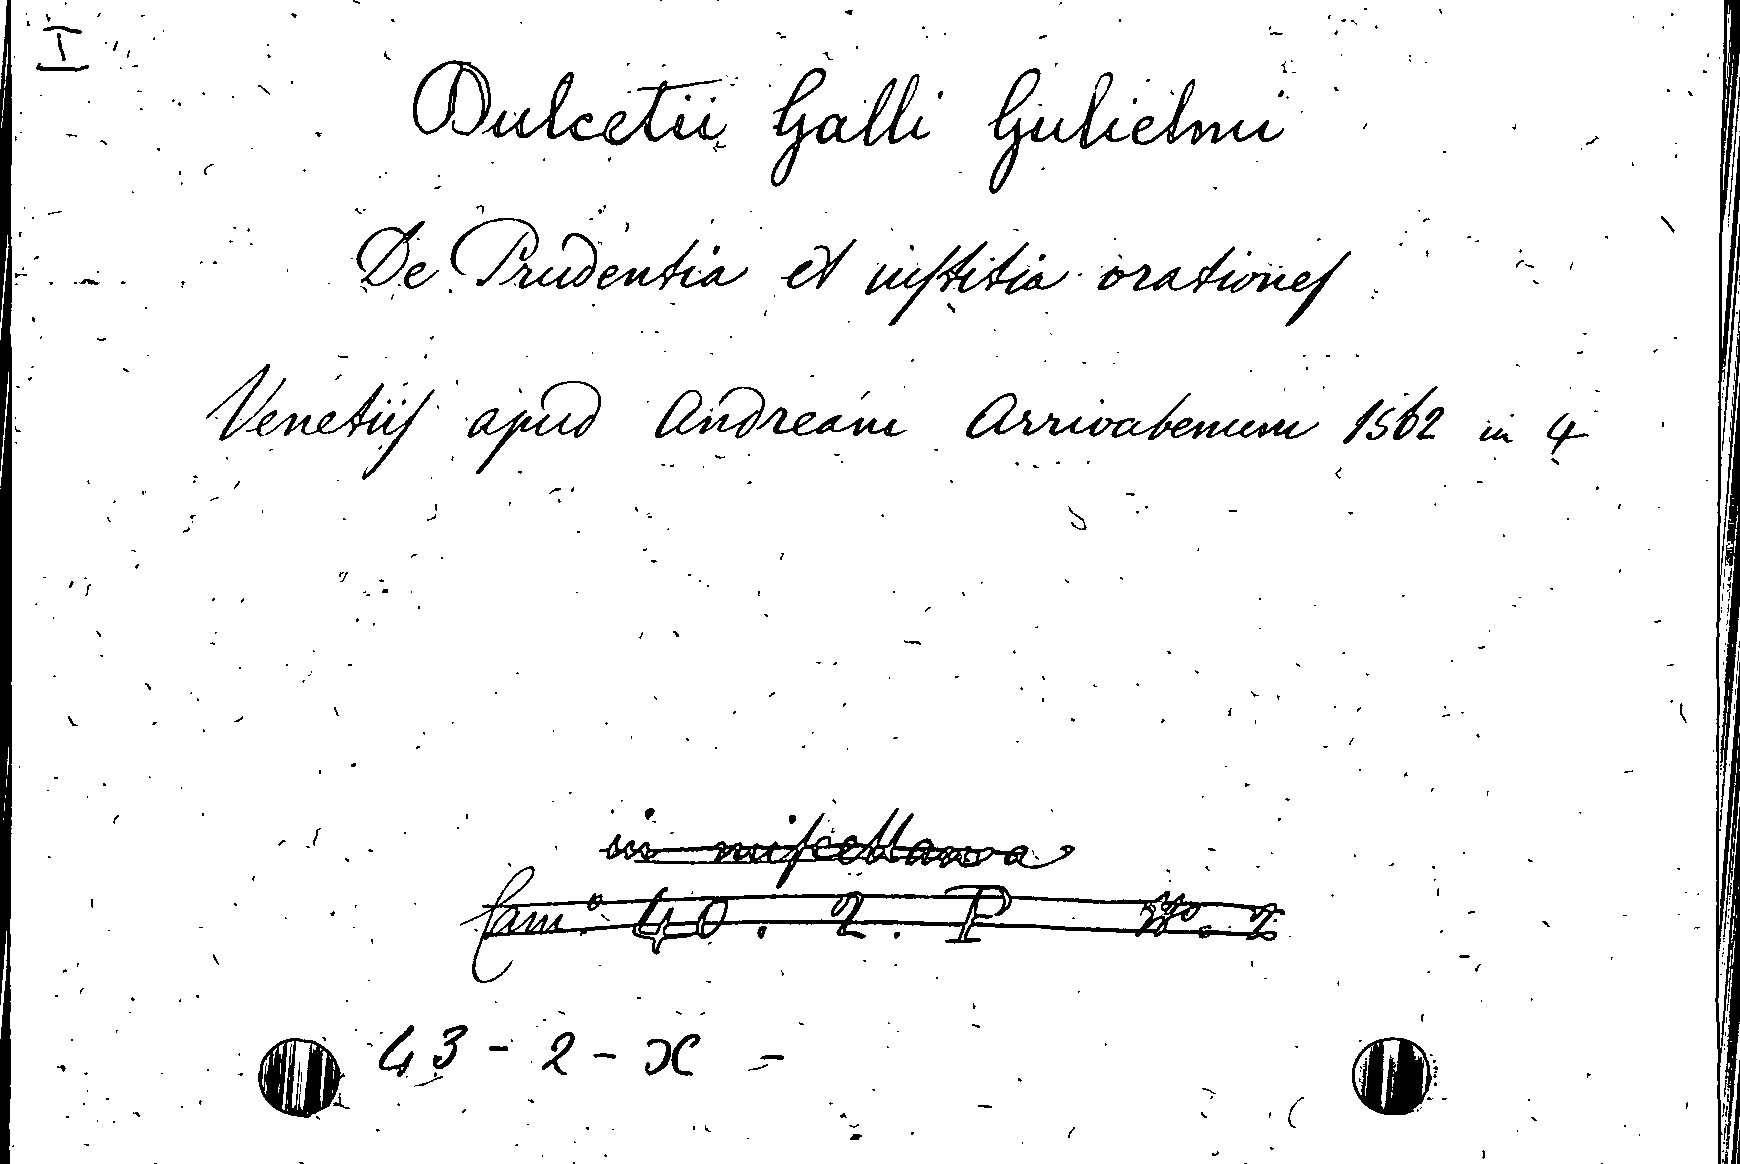 I
Dulcetii Galli Gulielmi
De Prudentia et iuſtitia orationeſ
Venetiiſ apud Andream Arrivabenum 1562 in 4
in miſcellanea
Cam.º 40. 2. P Nº. 2
43 - 2 - X -